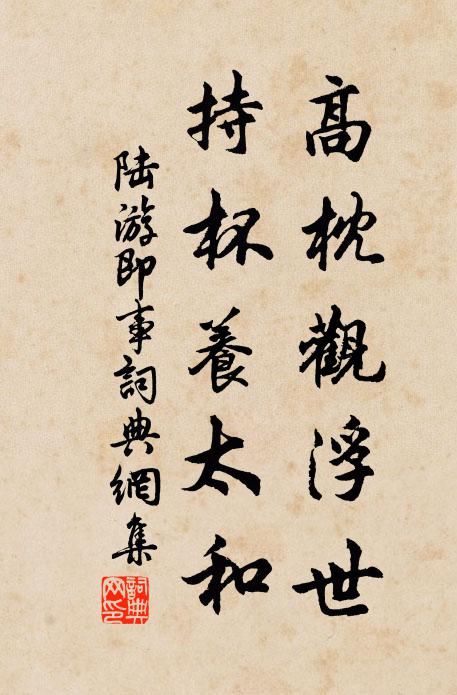 高枕觀浮世
持杯養太和
陸游即事詞典網集
詞典
网印